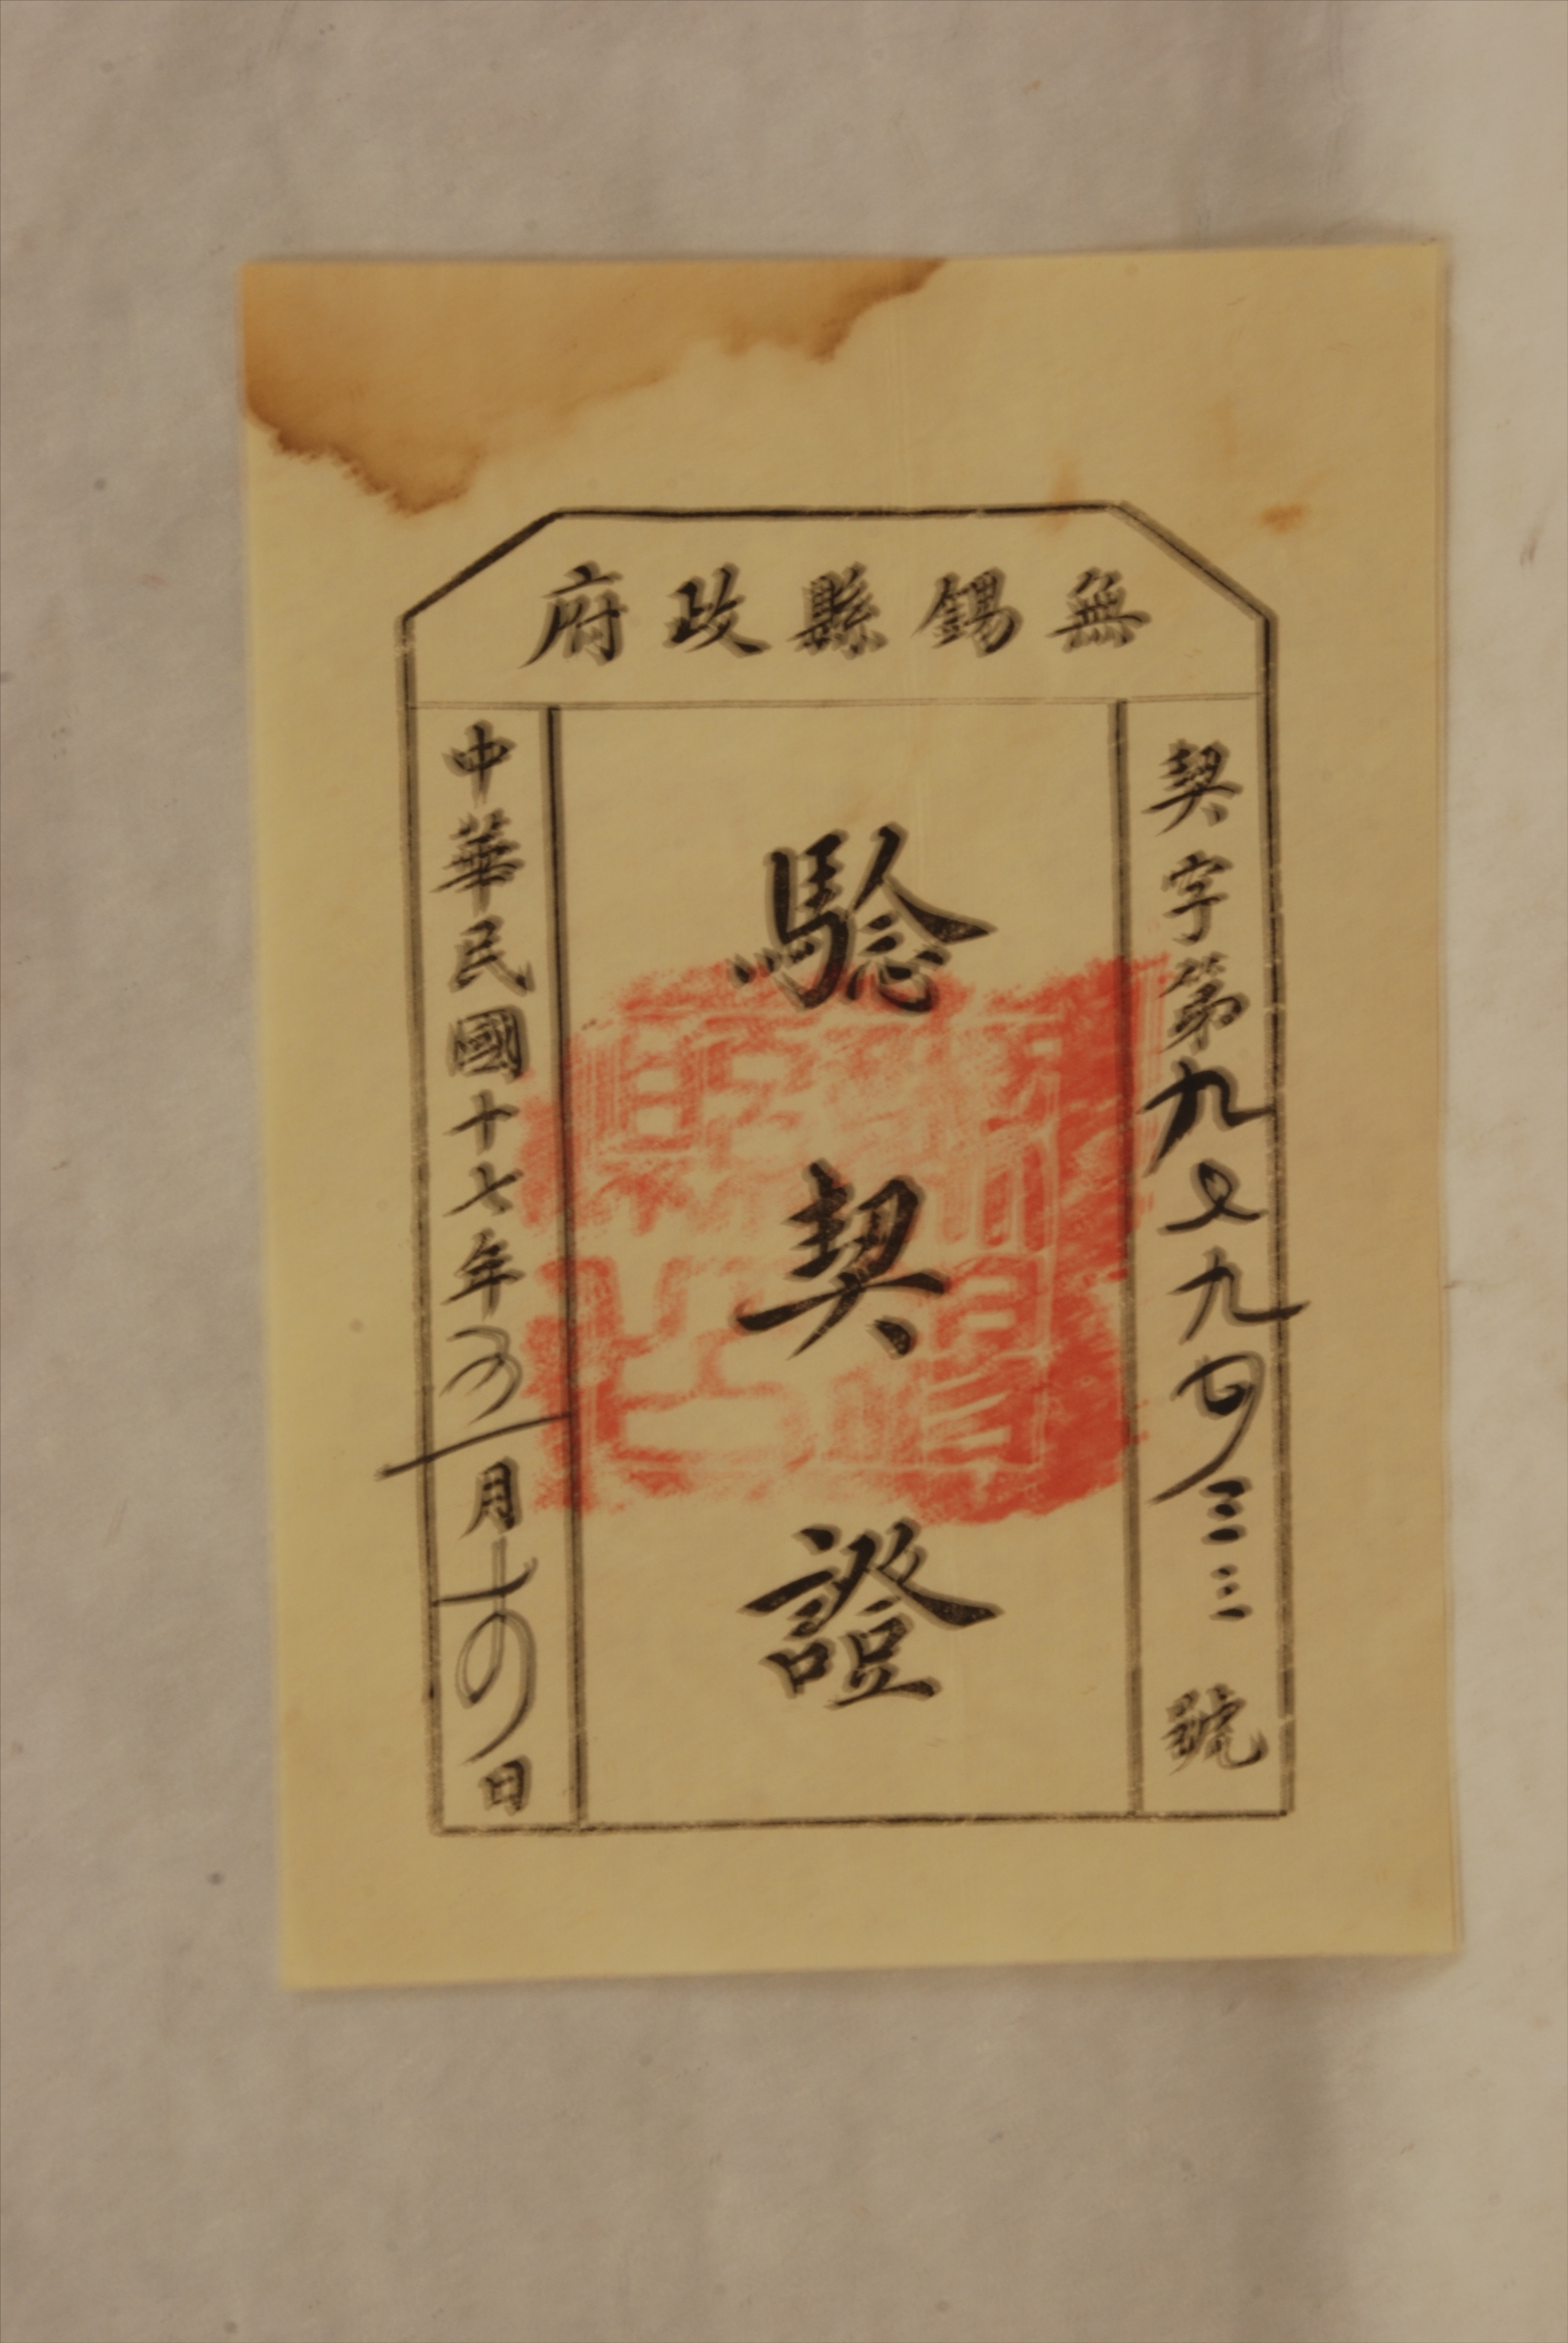 無錫縣政府
契字第九九四三三號
騐契證
中華民國十七年月十四日